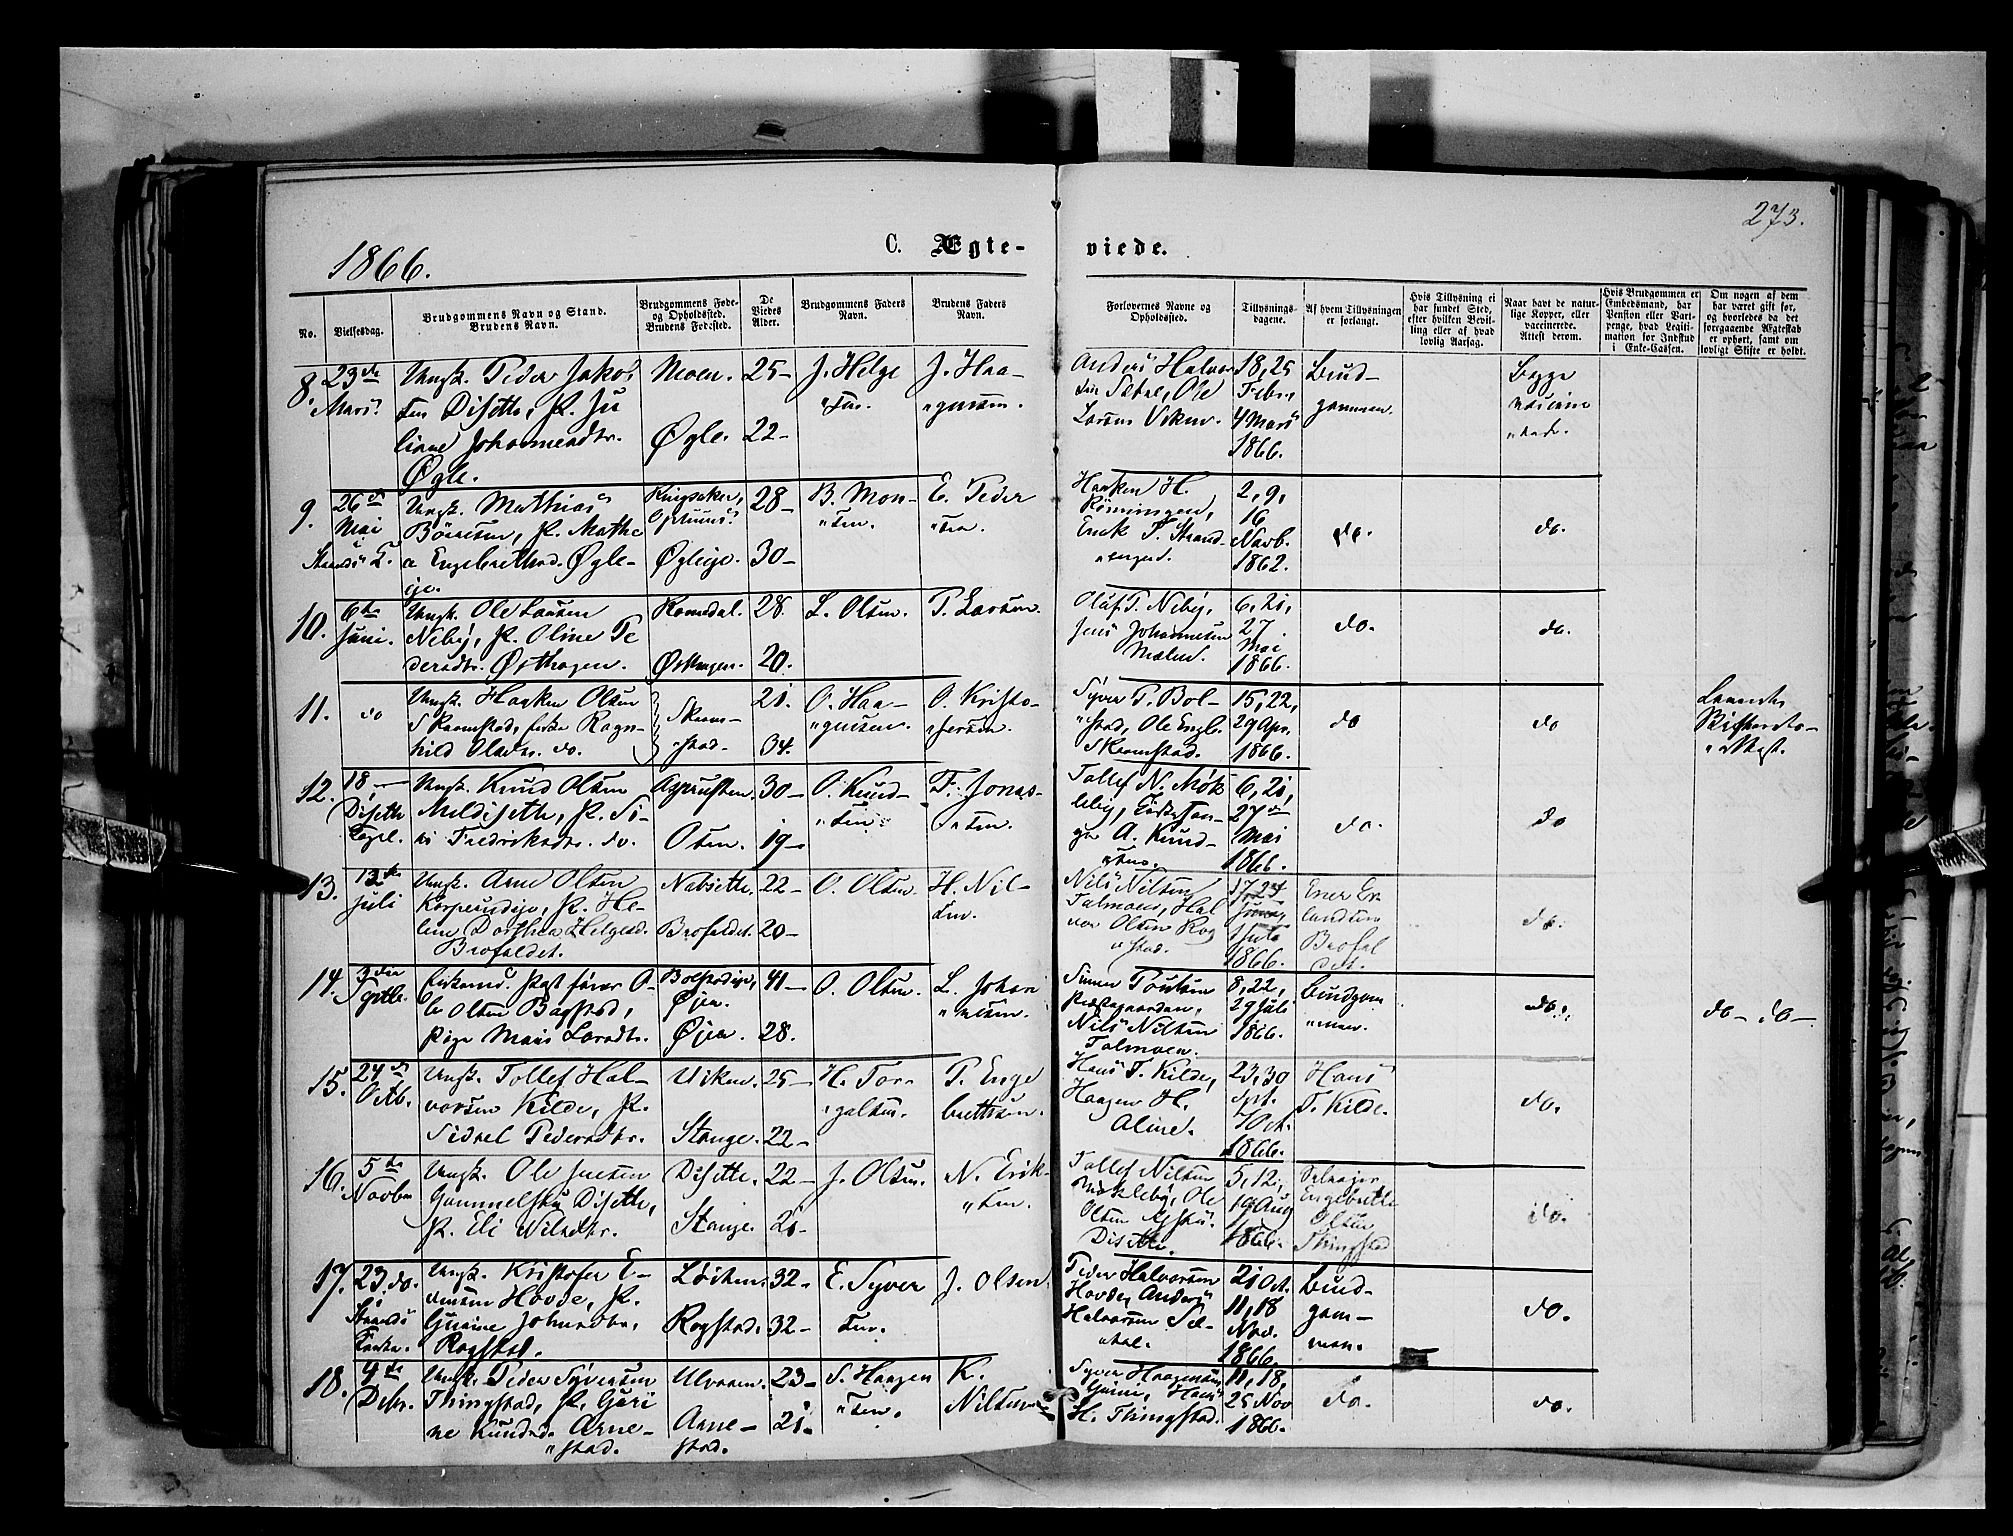 273.
1866.
C. Ægte-
viede.
No.
Vielsesdag.
Brudgommens Navn og Stand.
Brudens Navn.
Brudgommens Føde-
og Opholdssted.
Brudens Fødested.
De
Viedes
Alder.
Brudgommens Faders
Navn.
Brudens Faders
Navn.
Forlovernes Navne og
Opholdssted.
Tillysnings-
dagene.
Af hvem Tillysningen
er forlangt.
Hvis Tillysning ei
har fundet Sted,
efter hvilken Bevil-
ling eller af hvad
lovlig Aarsag.
Naar havt de natur-
lige Kopper, eller
vaccinerede.
Attest derom.
Hvis Brudgommen er
Embedsmand, har
Pension eller Vart-
penge, hvad Legiti-
mation for Indskud
i Enke-Cassen.
Om nogen af dem
har været gift før,
og hvorledes da det
forrgaaende Ægteskab
er ophørt, samt om
lovligt Skifte er holdt.
8. 23de Marts
Ungk. Peder Jakob
sen Disetth, P. Ju
liane Johannesdtr.
Øgle.
Moen. 25-
Øgle. 22-
J. Helge
"sen.
J. Haa-
"gensen.
Anders Halvor
sen Sætal, Ole
Larsen Viken.
18, 25
Febr,
4 Mars
1866.
Brud-
gommen.
Begge
vaccine
"rede.
9. 26de
Mai
Ungk. Mathias
Børresen, P. Mathe
a Engebrethsd. Øgle-
eje.
Ringsaker, 28-
Øgleeje. 30-
B. Mon-
"sen.
E. Peder
"sen.
Haaken H.
Rønningen,
Erik P. Strand-
"engen.
2, 9,
16
Novb.
1862.
do.
do.
10. 6te
Juni.
Ungk. Ole Larsen
Neby, P. Oline Pe
dersdtr. Østhagen.
Romsdal. 28.
Østhagen. 20.
L. Olsen.
P. Larsen.
Olaf P. Neby,
Jens Johannesen
Mælen.
6, 21,
27
Mai
1866.
do.
do.
11. do
Ungk. Haaken Olsen
Skramstad, Enke Ragn-
hild Olsdtr. do.
Skram-
"stad.
21.
34.
O. Haa-
"gensen.
O. Kristo-
"fersen.
Syver P. Bol-
"stad, Ole Engb.
Skramstad.
15, 22,
29 Apr.
1866.
do
do
12. 18
Disetth
Capel.
Ungk. Knud Olsen
Meldisetth, P. Si-
ri Fredriksdtr. do.
30-
Osen. 19-
O. Knud-
"sen.
F. Jonas-
"sen.
Tollef N. Møk
leby,
A. Knud-
"sen.
6, 21,
27de
Mai
1866.
do.
do
13. 13de
Juli
Ungk. Arne Olsen
Kasperudeje, P. He-
lene Dorthea Helgesd.
Brofaldet.
Nabsetth. 22-
Brofaldet. 20-
O. Olsen.
H. Nil-
sen.
Nils Nilsen
Talmoen, Hal
vor Olsen Rog
"stad.
17, 24
Juni,
1 Juli
1866.
Ener Er
landsen
Brofal
det.
do.
14. 3die
Septbr.
Enkemd. Postfører O-
le Olsen Bagstad,
Pige Maris Larsdtr.
Bolstadeje,
Øjen.
Øjen.
41-
28.
O. Olsen.
L. Johan
"nesen.
Simen Poulsen
Præstegaarden,
Nils Nilsen
Talmoen.
8, 22,
29 Juli
1866.
Brudgom
"men.
do.
do- do-
15. 24de
Octb.
Ungk. Tollef Hal-
vorsen Kilde, P.
Sidsel Pedersdtr.
Viken. 25-
Stange. 22-
H. Tor-
"galsen.
P. Enge
bretsen.
Hans T. Kilde,
Haagen H.
Aline.
23, 30
Spt.
7 Oct.
1866.
Hans
T. Kilde.
do.
16. 5te
Novbr
Ungk. Ole Jensen
Gammelstu Disetth,
P. Eli Nilsdtr.
Disetth. 22-
Stange. 21-
J. Olsen.
N. Erik-
"sen.
Tollef Nilsen
Møkleby, Ole
Olsen
Disetth.
5, 12,
19 Aug
1866.
Engebreth
Olsen
Thingstad
do.
17. 23. do.
Ungk. Kristofer E-
vensen Hovde, P.
Gurine Johnsdtr.
Rogstad.
Løiten. 32-
Rogstad. 32-
E. Syver
sen.
J. Olsen.
Peder Halvorsen
Hovde, Anders
Halvorsen Sæ-
"tal.
21 Oct.
11, 18
Nov.
1866.
Brud-
gom-
men.
do.
18. 4de
Debr.
Ungk. Peder Syversen
Thingstad, P. Guri
ne Knudsd. Arne-
"stad.
Ulvaaen. 23-
Arne-
stad.
21.
S. Haagen
"sen.
K.
Nilsen.
Syver Haagensen
Hans
H. Thingstad.
11, 18,
25 Nov
1866.
do.
do.